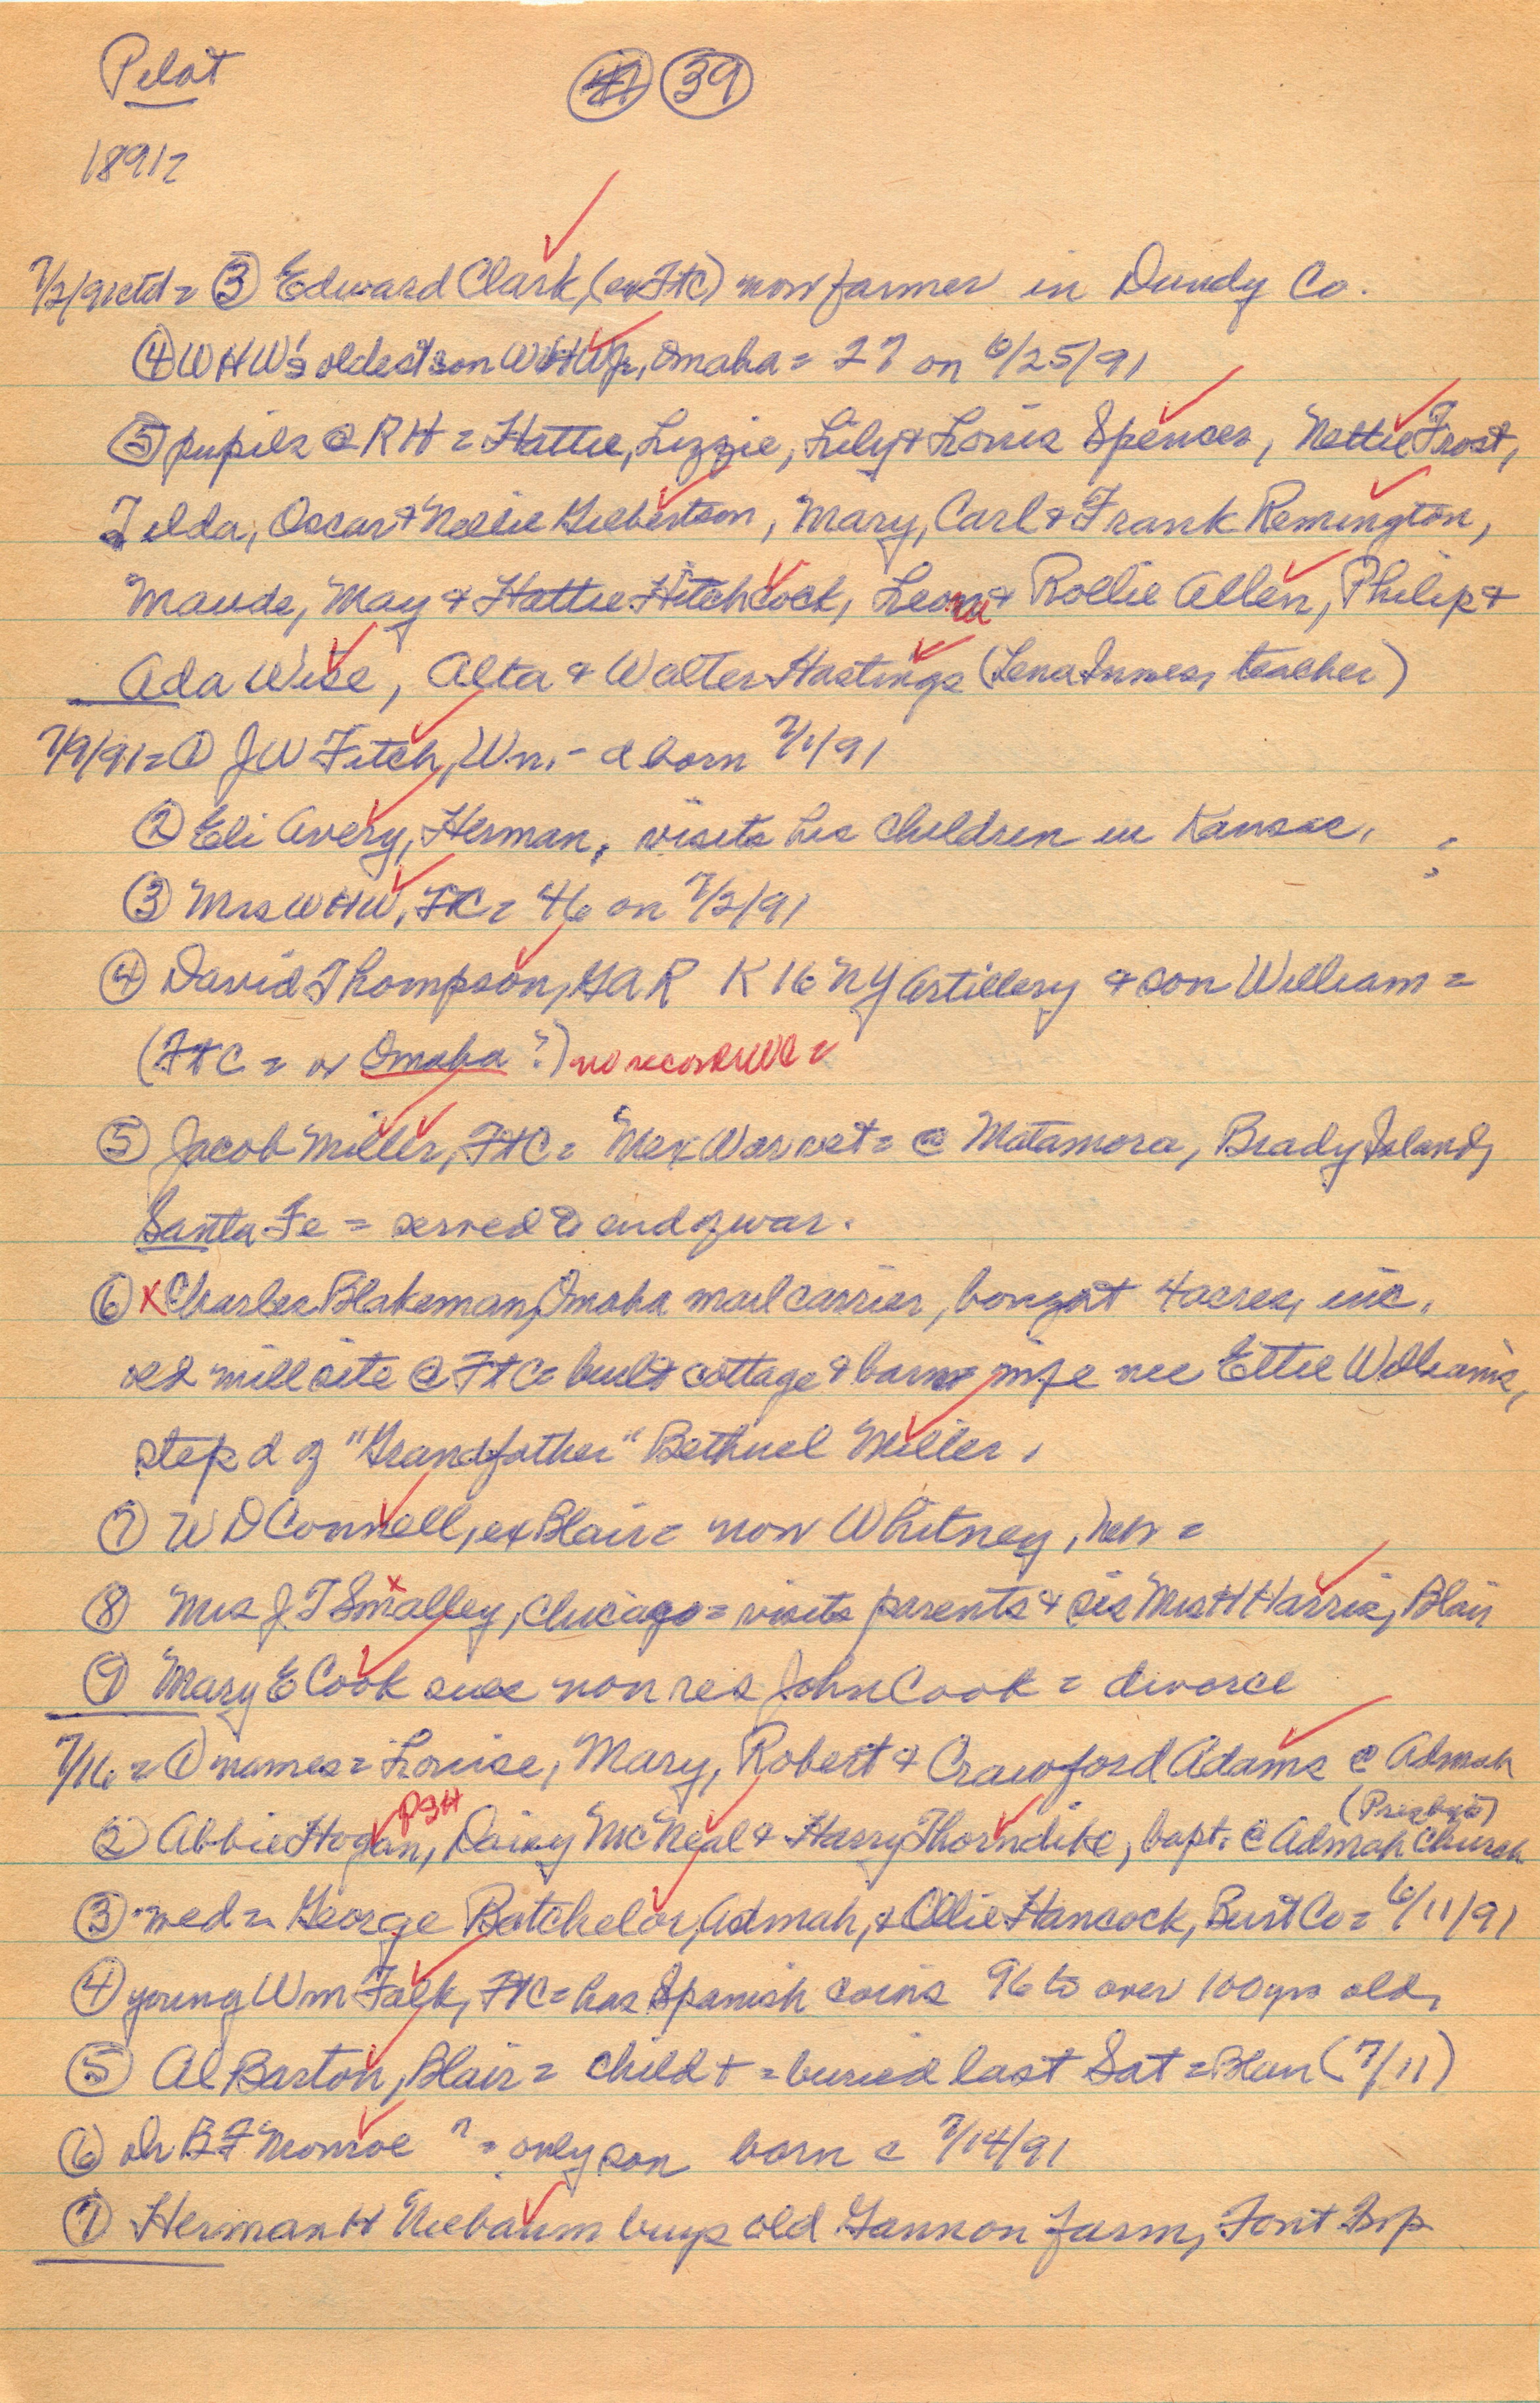 Pilot
39
1891=
7/2/91ctd= ③ Edward Clark, (ex FtC) now farmer in Dundy Co.
④ WHW's oldest son WHW Jr, Omaha = 27 on 6/25/91
⑤ pupils @ RH = Hattie, Lizzie, Lily & Louis Spencer, Nettie Frost,
Tilda, Oscar & Nellie Gilbertson, Mary, Carl & Frank Remington,
Maude, May & Hattie Hitchcock, Leona & Rollie Allen, Philip &
Ada Wise, Alta & Walter Hastings (Lena Inness, teacher)
7/9/91= ① JW Fitch, Wn. - d born 7/1/91
② Eli Avery, Herman, visits his children in Kansas.
③ Mrs WHW, FtC = 46 on 7/2/91
④ David Thompson, GAR K 16 NY Artillery & son William =
(FtC = or Omaha?) no record WC =
⑤ Jacob Miller, FtC = Mex War vet = @ Matamora, Brady Island,
Santa Fe = served to end of war.
⑥ x Charles Blakeman, Omaha mail carrier, bought 4 acres, inc.
old mill site @ FtC = built cottage & barn = wife nee Ettie Williams,
step d of "Grandfather" Bethuel Miller,
⑦ W D Connell, ex Blair = now Whitney, Neb =
⑧ Mrs J T Smalley, Chicago = visits parents & sis Mrs H Harris, Blair
⑨ Mary E Cook sues non res John Cook = divorce
7/16 = ① names = Louise, Mary, Robert & Crawford Adams @ Admah
② Abbie Hogan, PGH Daisy McNeal & Harry Thorndike, bapt. @ Admah Church (Presbyt)
③ wed = George Batchelor, Admah, & Ollie Hancock, Burt Co = 6/11/91
④ young Wm Falk, FtC = has Spanish coins 96 to over 100 yrs old,
⑤ Al Barton, Blair = child + = buried last Sat = Blair (7/11)
⑥ Dr B F Monroe ? = only son born c 7/14/91
⑦ Herman H Niebaum buys old Gannon farm, Font Twp